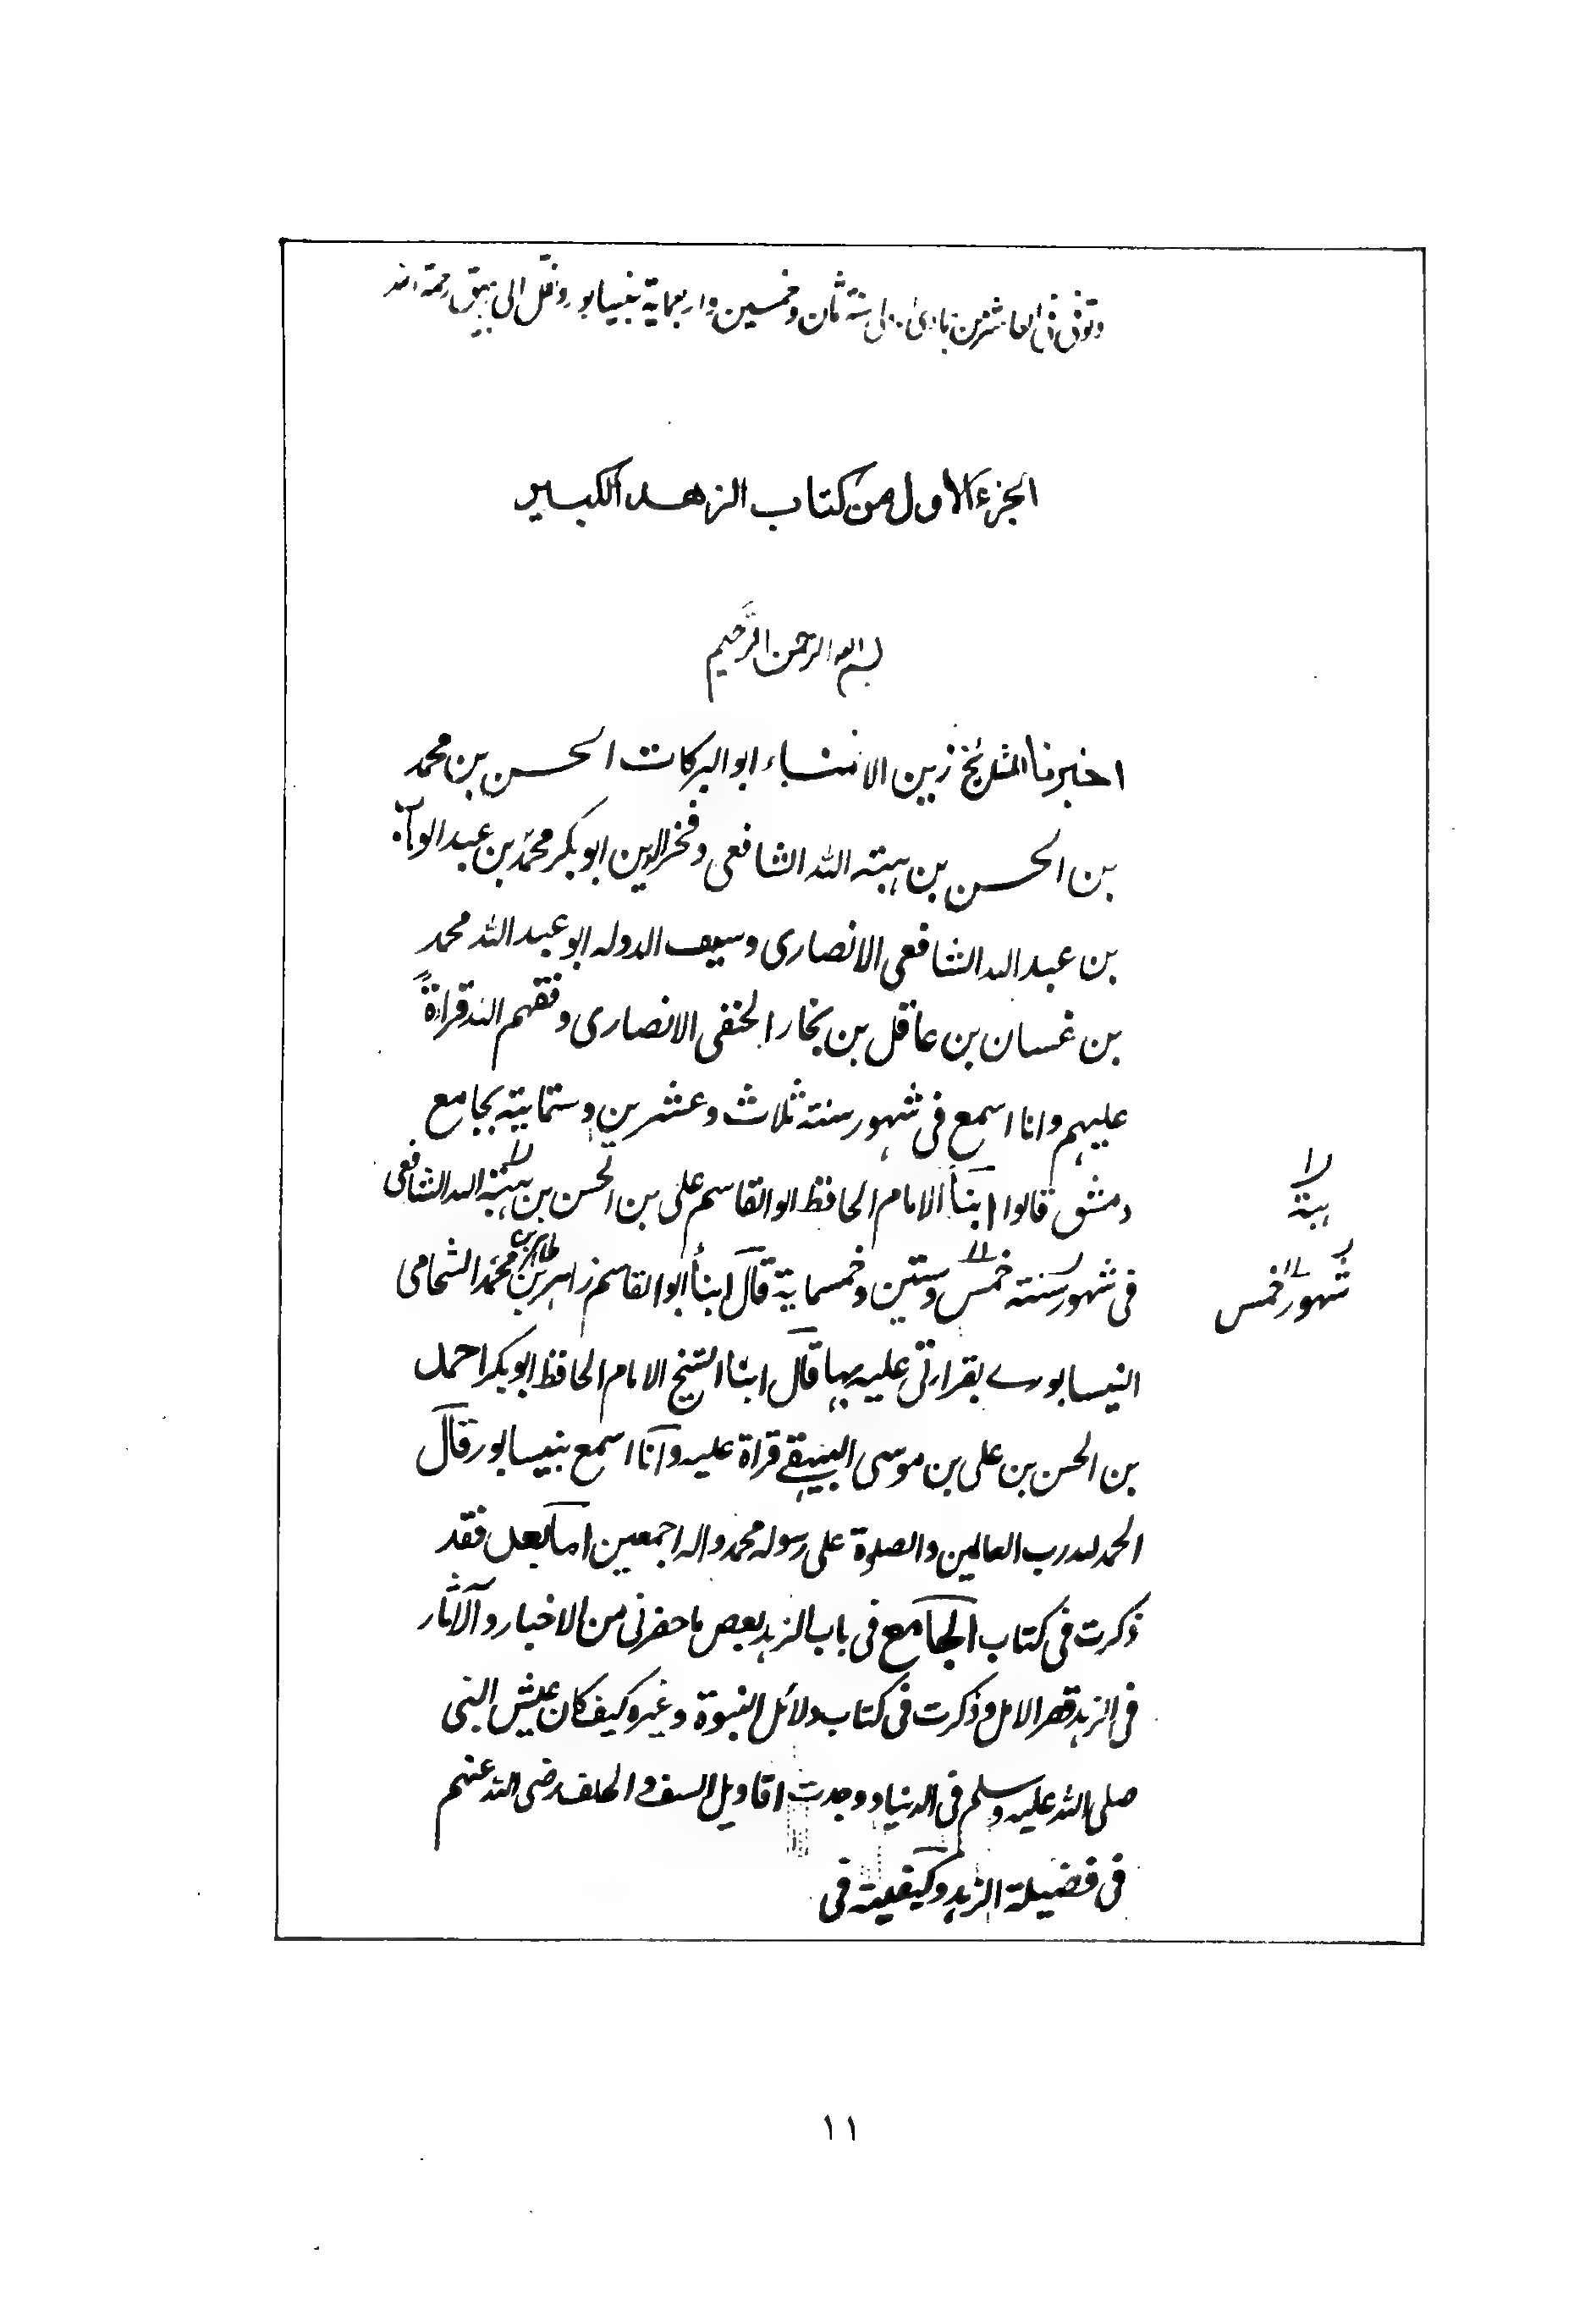 وتوفى فى العاشر من جمادى الاولى سنة ثمان وخمسين واربعماية بنيسابور ونقل الى بيهق رحمة الله
الجزء الاول من كتاب الزهد الكبير
بسم الله الرحمن الرحيم
اخبرنا المشائخ زين الامناء ابو البركات الحسن بن محمد
بن الحسن بن هبته الله الشافعى وفخر الدين ابو بكر محمد بن عبد الوهاب
بن عبد الله الشافعى الانصارى وسيف الدوله ابو عبد الله محمد
بن غسان بن عاقل بن نجار الحنفى الانصارى وفقهم الله قراءةً
عليهم وانا اسمع فى شهور سنته ثلاث وعشرين وستمايته بجامع
دمشق قالوا ابنأ الامام الحافظ ابو القاسم على بن الحسن بن هبته الله الشافعى
هبتة
فى شهور سنته خمس وستين وخمسماية قال ابنأ ابو القاسم زاهر بن طاهر بن محمد الشحامى
شهور خمس
النيسابورے بقرارتى عليه بها قال ابنا الشيخ الامام الحافظ ابو بكر احمد
بن الحسن بن على بن موسى البيهقے قراة عليه وانا اسمع بنيسابور قال
الحمد لله رب العالمين والصلوة على رسوله محمد واله اجمعين اما بعد فقد
ذكرت فى كتاب الجامع فى باب الزهد بعض ما حضرنى من الاخبار والآثار
فى الزهد قصر الامل وذكرت فى كتاب دلائل النبوة وغيره كيف كان عيش النبى
صلى الله عليه وسلم فى الدنيا ووجدت اقاويل السلف والخلف رضى الله عنهم
فى فضيلة الزهد وكيفيته فى
١١